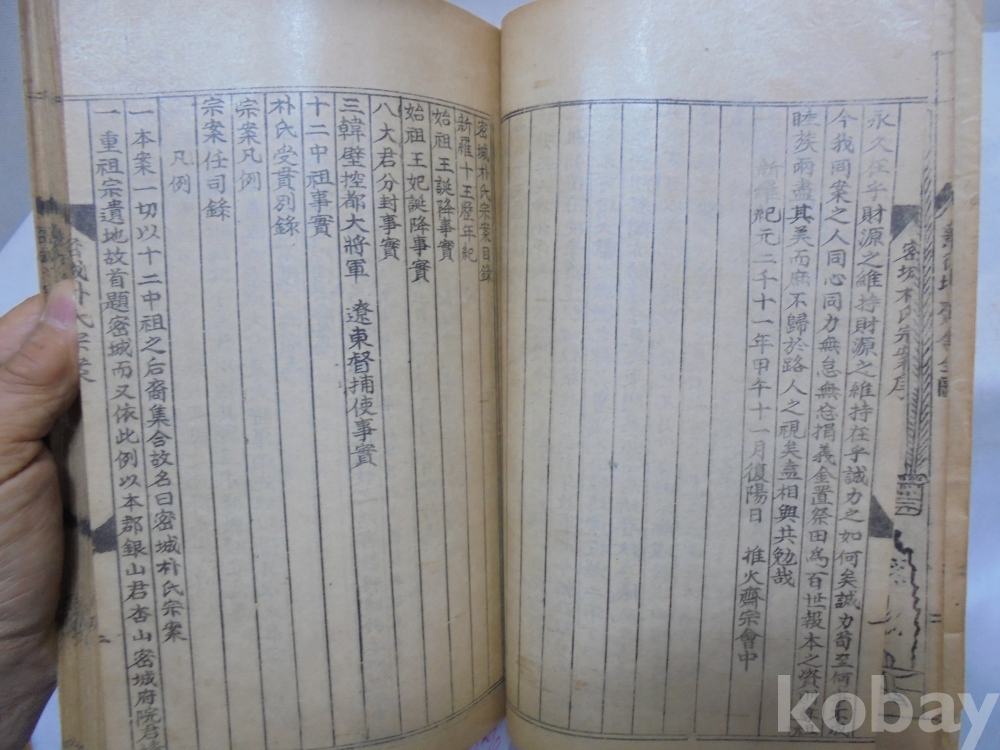 永久在乎財源之維持財源之維持在乎誠力之如何矣誠力苟至何
今我同案之人同心同力無怠無忘捐義金置祭田爲百世報本之資
睦族兩盡其美而庶不歸於路人之視矣盍相與共勉哉
新羅紀元二千十一年甲午十一月復陽日 推火齋宗會中
密城朴氏宗案序
密城朴氏宗案目錄
新羅十王歷年紀
始祖王誕降事實
始祖王妃誕降事實
八大君分封事實
三韓壁控都大將軍 遼東督捕使事實
十二中祖事實
朴氏受貫別錄
宗案凡例
宗案任司錄
凡例
一本案一切以十二中祖之后裔集合故名曰密城朴氏宗案
一重祖宗遺地故首題密城而又依此例以本郡銀山君杏山密城府院君
密城朴氏宗案
二
kobay